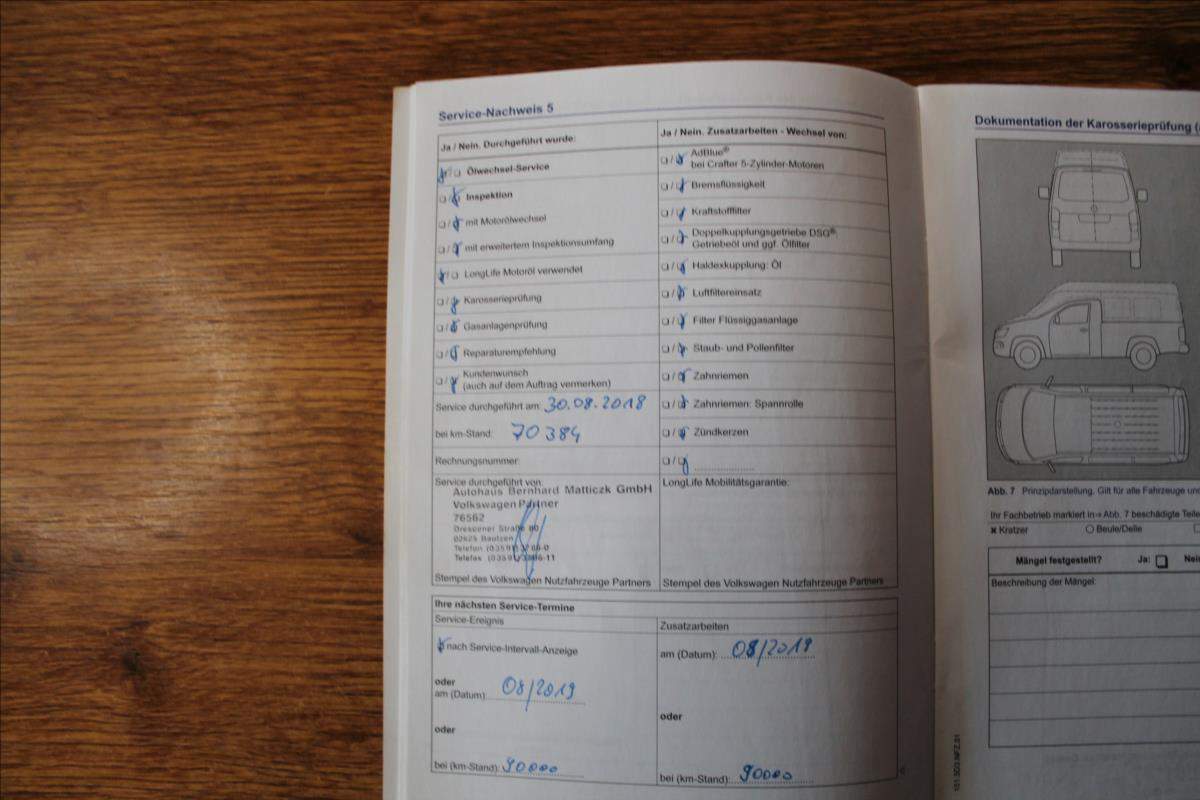 Service-Nachweis 5
Ja / Nein. Durchgeführt wurde:
Ölwechsel-Service
Inspektion
mit Motorölwechsel
mit erweitertem Inspektionsumfang
LongLife Motoröl verwendet
Karosserieprüfung
Gasanlagenprüfung
Reparaturempfehlung
Kundenwunsch
(auch auf dem Auftrag vermerken)
Service durchgeführt am: 30.08.2018
bei km-Stand: 70384
Rechnungsnummer:
Service durchgeführt von:
Autohaus Bernhard Matticzk GmbH
Volkswagen Partner
76562
Dresdener Straße 80
02625 Bautzen
Telefon
Telefax
Stempel des Volkswagen Nutzfahrzeuge Partners
Ja / Nein. Zusatzarbeiten - Wechsel von:
AdBlue®
bei Crafter 5-Zylinder-Motoren
Bremsflüssigkeit
Kraftstofffilter
Doppelkupplungsgetriebe DSG®:
Getriebeöl und ggf. Ölfilter
Haldexkupplung: Öl
Luftfiltereinsatz
Filter Flüssiggasanlage
Staub- und Pollenfilter
Zahnriemen
Zahnriemen: Spannrolle
Zündkerzen
LongLife Mobilitätsgarantie:
Stempel des Volkswagen Nutzfahrzeuge Partners
Ihre nächsten Service-Termine
Service-Ereignis
nach Service-Intervall-Anzeige
oder
am (Datum): 08/2019
oder
bei (km-Stand): 90000
Zusatzarbeiten
am (Datum): 08/2019
oder
bei (km-Stand): 90000
Dokumentation der Karosserieprüfung
Abb. 7 Prinzipdarstellung. Gilt für alle Fahrzeuge
Ihr Fachbetrieb markiert in ⇒ Abb. 7 beschädigte Teile
Kratzer
Beule/Delle
Mängel festgestellt? Ja: Nein
Beschreibung der Mängel: